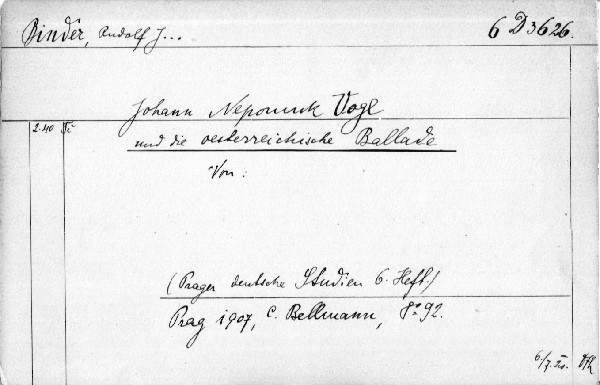 Binder, Rudolf J... 6 D 3626.
Johann Nepomuk Vogl
2.40
und die oesterreichische Ballade
Von:
(Prager deutsche Studien 6. Heft.)
Prag 1907, C. Bellmann, 8° 92.
6/7.